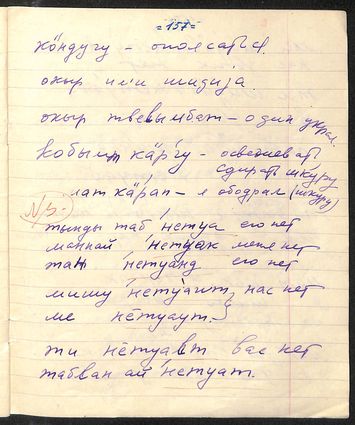 = 157 =
кӧндугу – опоясаться.
окыр или шидија.
окыр твевымбат – один украл
кобып кӓргу – освежевать
сдирать шкуру
мат кӓрап – я ободрал (шкуру)
N/3:-
тынды таб 'нетуа его нет
маннай 'нетуак меня нет
тан 'нетуанд его нет
мишу 'нетуашт, нас нет
ме нётуаут.
ти нётуавт вас нет
табван ай 'нетуат.